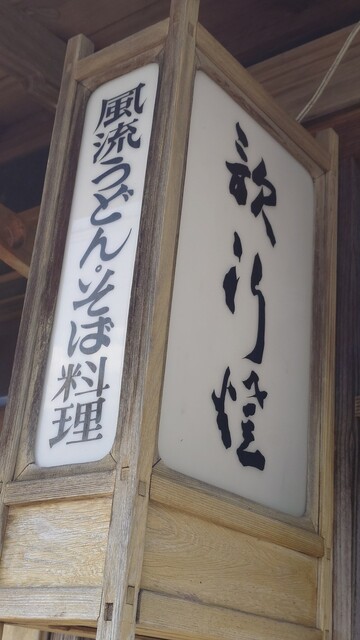 歌行燈
風流うどん・そば料理